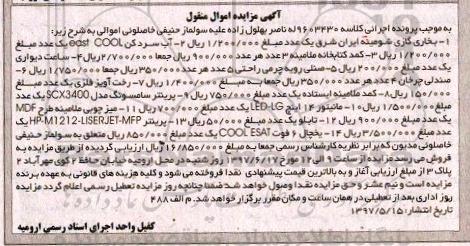 آگهی مزایده اموال منقول
به موجب پرونده اجرائی کلاسه ۹۶۰۳۴۳۰ له ناصر بهلول زاده علیه سولماز حنیفی خاصلونی اموالی به شرح زیر:
۱- بخاری گازی شومینه ایران شرق یک عدد مبلغ ۱/۲۰۰/۰۰۰ ریال ۲- آب سردکن east COOL یک عدد مبلغ
۱/۲۰۰/۰۰۰ ریال ۳- کمد کتابخانه ملامینه ۳ عدد هر عدد ۹۰۰/۰۰۰ ریال جمعا ۲/۷۰۰/۰۰۰ ریال ۴- ساعت دیواری
یک عدد مبلغ ۲۰۰/۰۰۰ ریال ۵- صندلی رویه چرمی راحتی ۵ عدد هر عدد ۳۵۰/۰۰۰ ریال جمعا ۱/۷۵۰/۰۰۰ ریال ۶-
صندلی چرخان ۴ عدد هر عدد ۳۵۰/۰۰۰ ریال جمعا به مبلغ ۱/۴۰۰/۰۰۰ ریال ۷- رخت آویز فلزی یک عدد مبلغ
۱۵۰/۰۰۰ ریال ۸- کمد ملامینه ایستاده یک عدد مبلغ ۷۵۰/۰۰۰ ریال ۹- پرینتر سامسونگ مدل SCX3400 یک عدد
مبلغ ۱/۵۰۰/۰۰۰ ریال ۱۰- مانیتور ۱۴ اینچ LED-LG یک عدد مبلغ ۷۰۰/۰۰۰ ریال ۱۱- میز چوبی ملامینه طرح MDF
یک عدد مبلغ ۹۰۰/۰۰۰ ریال ۱۲- تابلو یک عدد مبلغ ۵۰/۰۰۰ ریال ۱۳- پرینتر HP-M1212-LISERJET-MFP یک
عدد مبلغ ۳/۵۰۰/۰۰۰ ریال ۱۴- یخچال ۶ فوت COOL ESAT یک عدد مبلغ ۸۵۰/۰۰۰ ریال متعلق به سولماز حنیفی
خاصلونی مدیون که برابر نظریه کارشناس رسمی جمعا به مبلغ ۱۶/۸۵۰/۰۰۰ ریال ارزیابی گردیده از طریق مزایده به
فروش می رسد مزایده از ساعت ۹ الی ۱۲ مورخ ۱۳۹۷/۶/۱۷ روز شنبه در محل ارومیه خیابان حافظ ۲ کوی مهرآباد ۲
پلاک ۳ از مبلغ ارزیابی آغاز و به بالاترین قیمت پیشنهادی نقدا فروخته می شود و کلیه هزینه های قانونی به عهده برنده
مزایده است و نیم عشر و حق مزایده نقدا وصول خواهد شد ضمنا چنانچه روز مزایده تعطیل رسمی اعلام گردد مزایده
روز اداری بعد از تعطیلی در همان ساعت و مکان مقرر برگزار خواهد شد. م الف ۴۸۸
تاریخ انتشار: ۱۳۹۷/۵/۱۵
کفیل واحد اجرای اسناد رسمی ارومیه